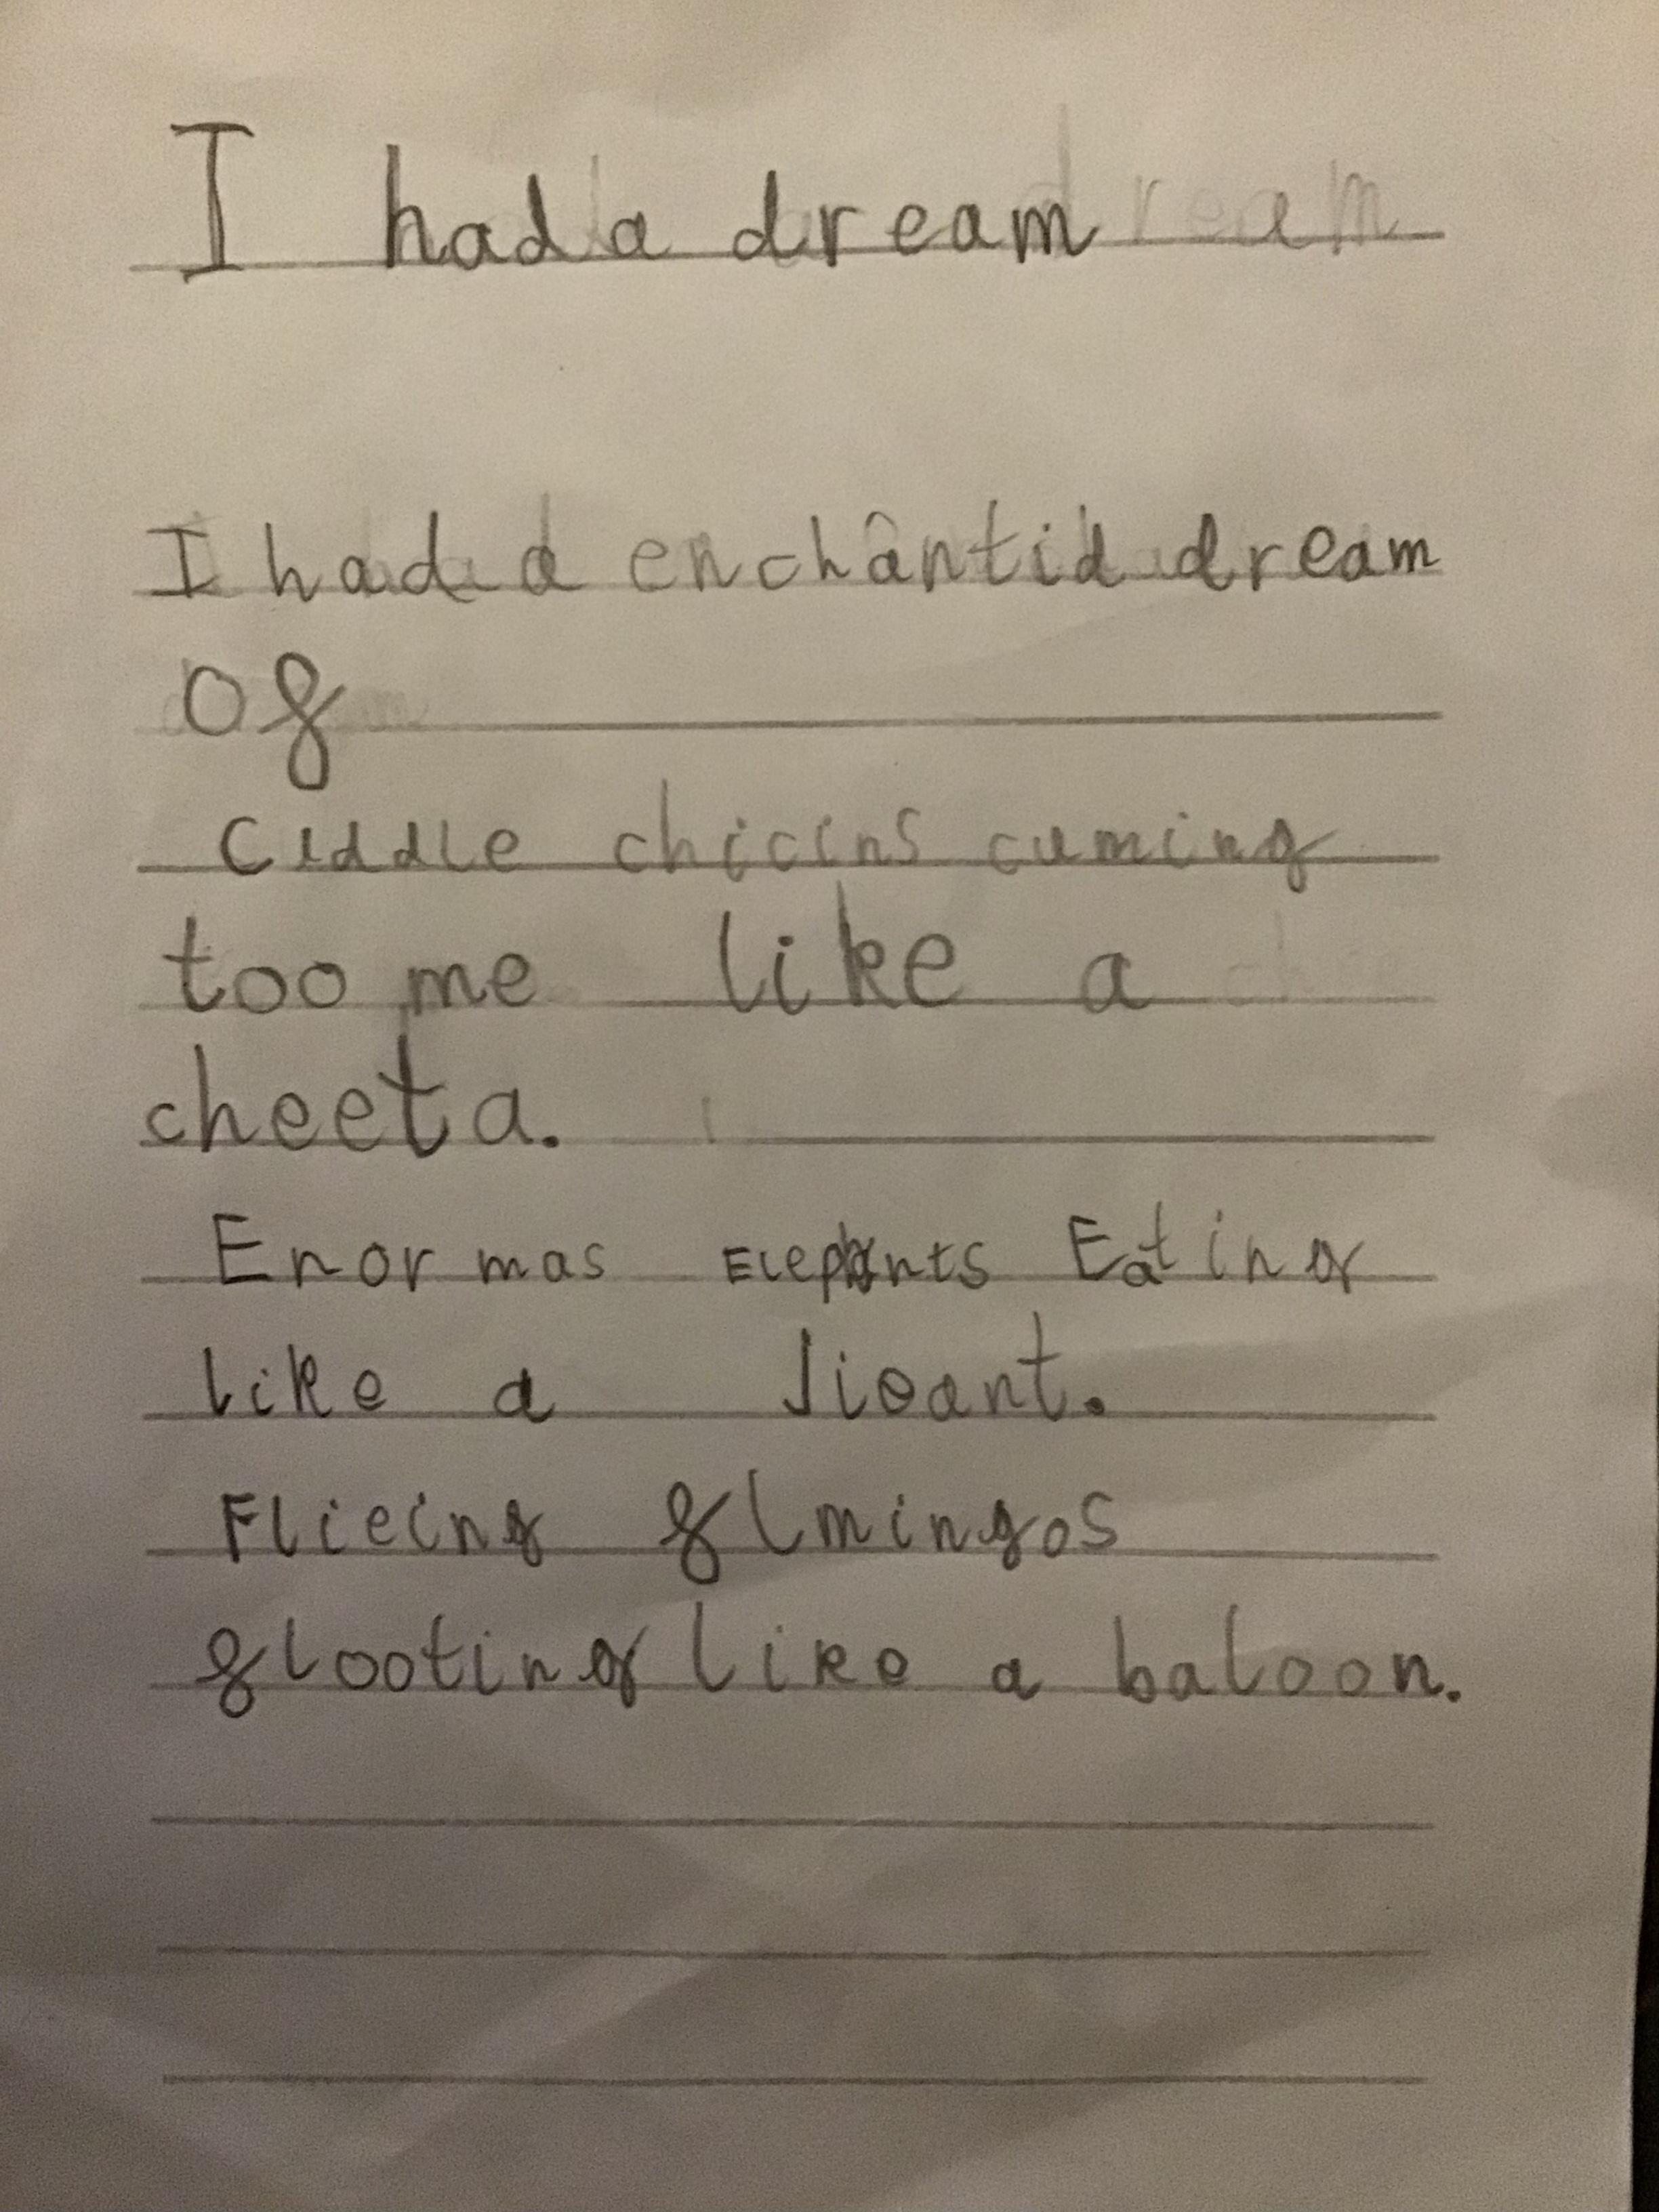 I had a dream
I had a enchantid dream
of
cuddle chicins cuming
too me like a
cheeta.
Enormas Elephants Eating
like a Jieant.
Flieing flmingos
flooting like a baloon.